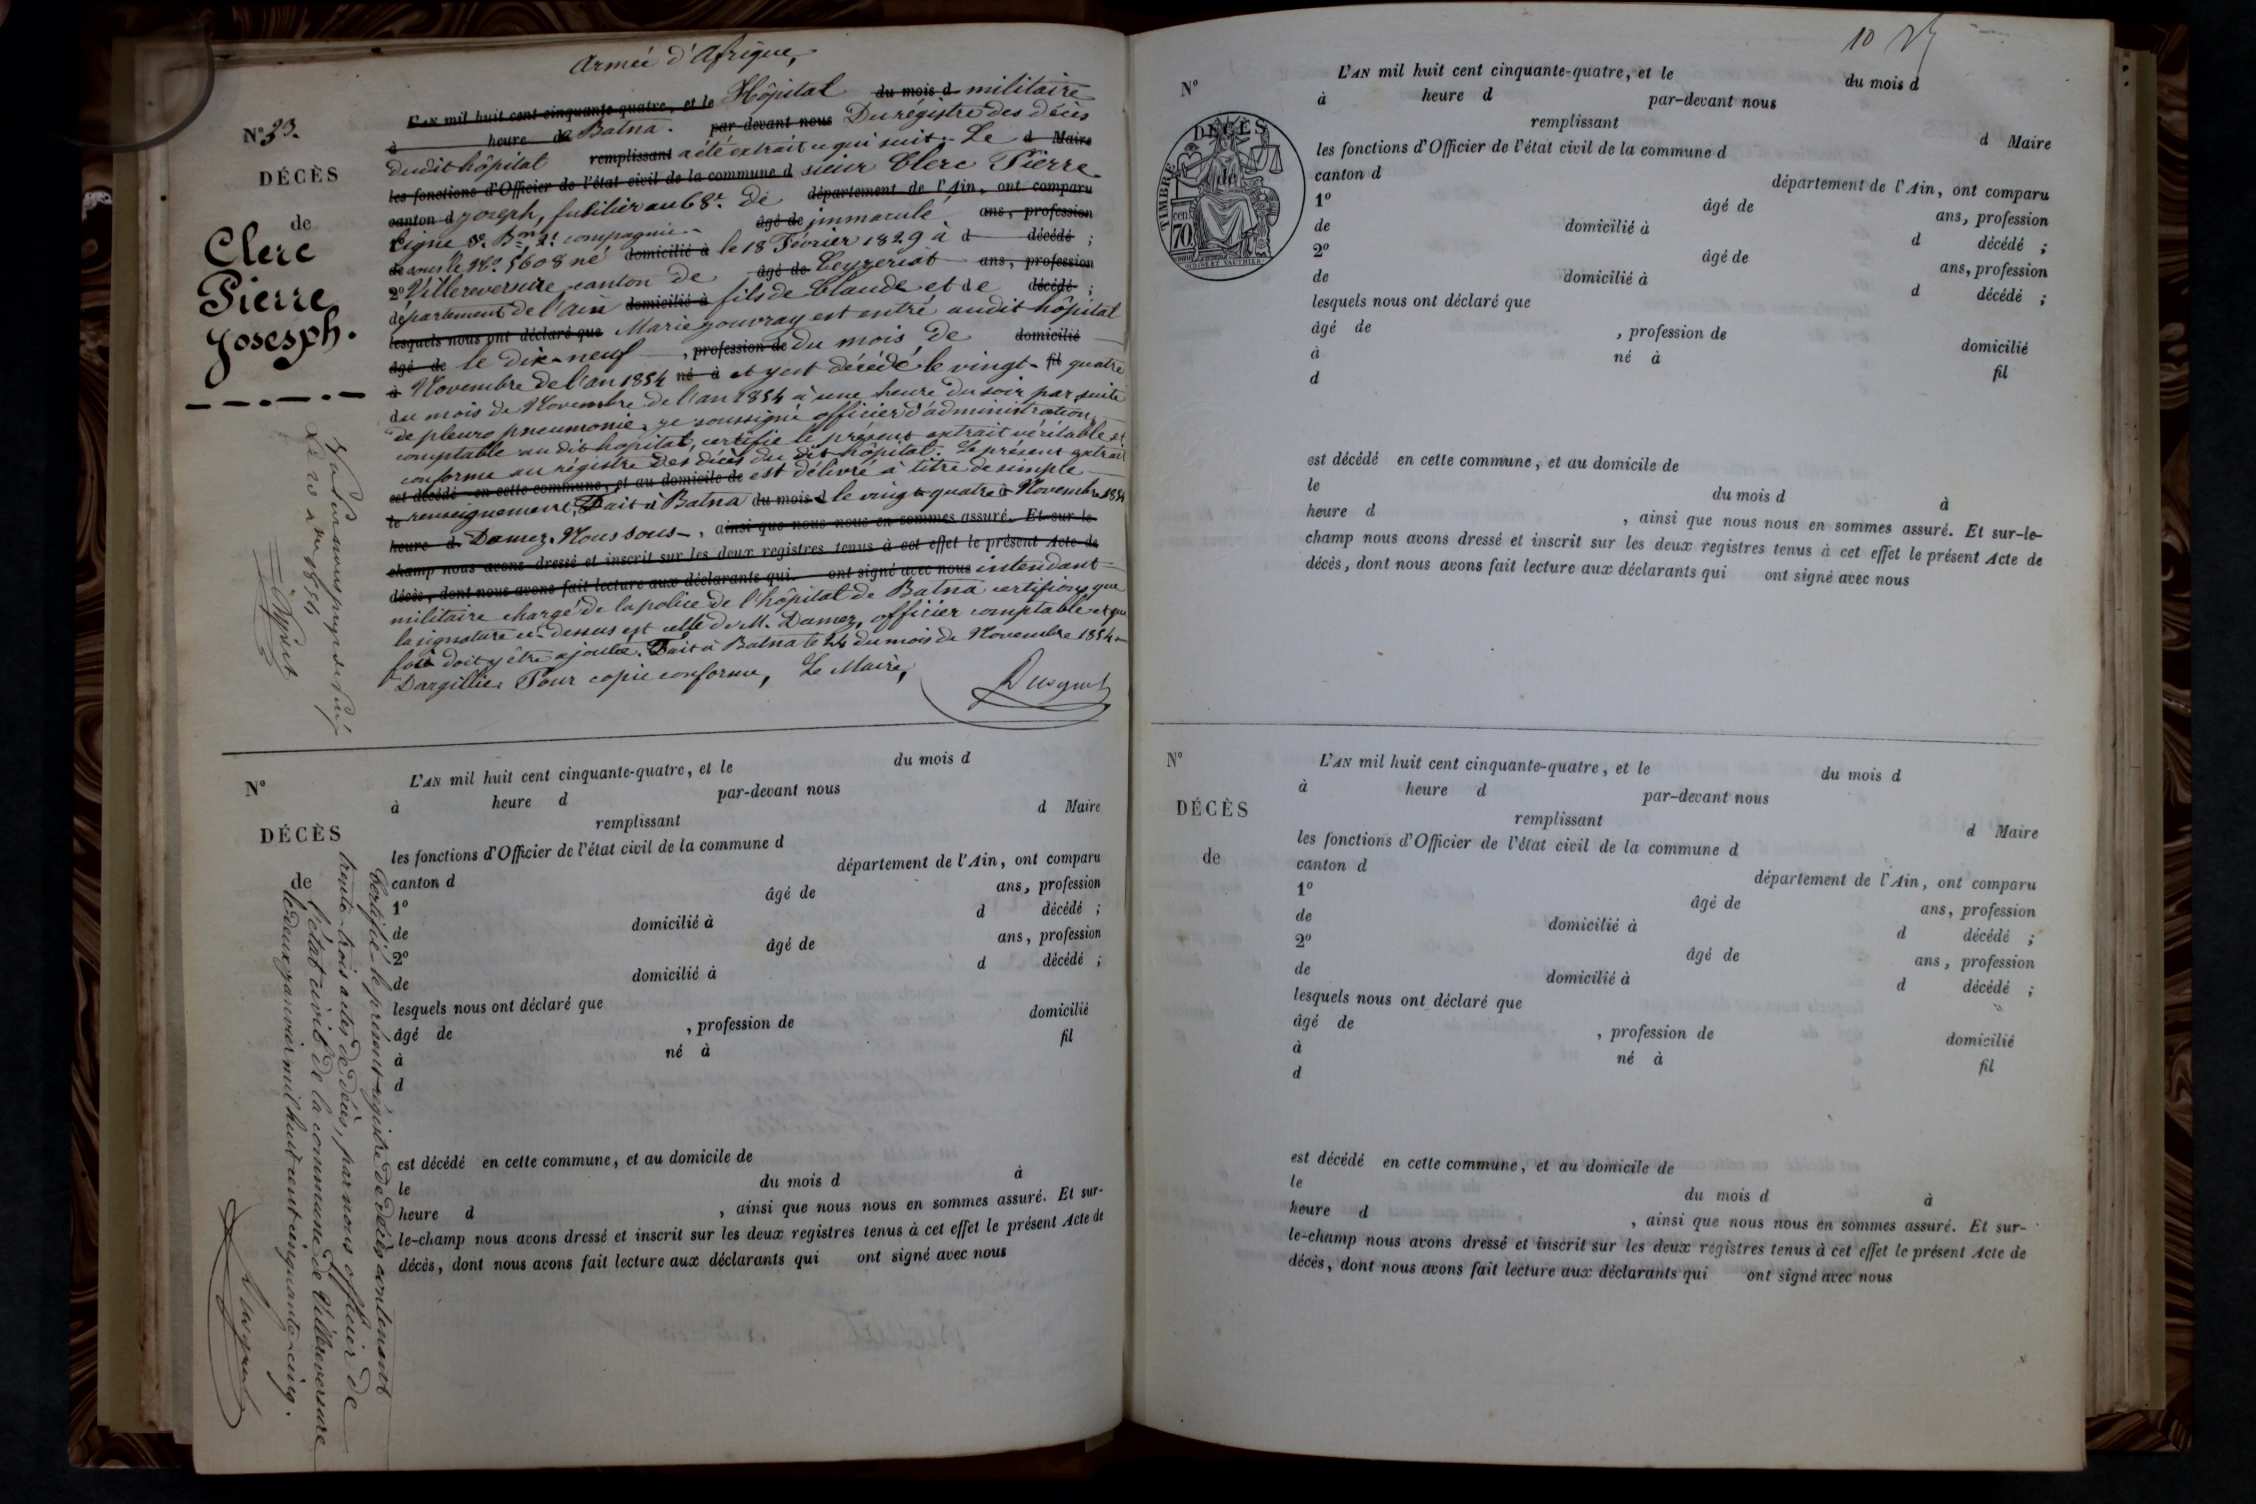 Armée d'Afrique,
N° 33.
DÉCÈS
de
Clerc
Pierre
Josesph.
L'AN mil huit cent cinquante-quatre, et le Hôpital du mois d militaire
à heure de Batna. par-devant nous Du régistre des décès
dudit hôpital remplissant a été extrait ce qui suit. Le d Maire
les fonctions d'Officier de l'état civil de la commune d sieur Clerc Pierre
canton d Joseph, fusilier au 68e. de département de l'Ain, ont comparu
1° ligne 3e. Bon 2e compagnie âgé de immaculé. ans, profession
de sous le No. 5608 né domicilié à le 18 Février 1829 à d décédé ;
2° Villereversure canton de âgé de Ceyzeriat ans, profession
département de l'ain domicilié à fils de Claude et de décédé ;
lesquels nous ont déclaré que Marie est entré audit hôpital
âgé de le dix-neuf , profession de du mois de domicilié
à Novembre de l'an 1854 né à et y est décédé le vingt- fil quatre
du mois de Novembre de l'an 1854 à une heure du soir par suite
de pleuro pneumonie. je soussigné officier d'administration
comptable audit hôpital, certifie le présent extrait véritable et
conforme au régistre des décès du dit hôpital. Le présent extrait
est décédé en cette commune, et au domicile de est délivré à titre de simple
le renseignement, Fait à Batna du mois d le vingt quatre à Novembre 1854
heure d Damez. Nous sous- , ainsi que nous nous en sommes assuré. Et sur-le-
champ nous avons dressé et inscrit sur les deux registres tenus à cet effet le présent Acte de
décès, dont nous avons fait lecture aux déclarants qui ont signé avec nous intendant
militaire chargé de la police de l'hôpital de Batna certifions que
la signature ci-dessus est celle de M. Damez, officier comptable et que
foi doit y être ajoutée. Fait à Batna le 24 du mois de Novembre 1854
Dargillies Pour copie conforme, Le Maire,
N°
DÉCÈS
de
L'AN mil huit cent cinquante-quatre, et le du mois d
à heure d par-devant nous
remplissant d Maire
les fonctions d'Officier de l'état civil de la commune d
canton d département de l'Ain, ont comparu
1° âgé de ans, profession
de domicilié à d décédé ;
2° âgé de ans, profession
de domicilié à d décédé ;
lesquels nous ont déclaré que
âgé de , profession de domicilié
à né à fil
d
est décédé en cette commune, et au domicile de
le du mois d à
heure d , ainsi que nous nous en sommes assuré. Et sur-
le-champ nous avons dressé et inscrit sur les deux registres tenus à cet effet le présent Acte de
décès, dont nous avons fait lecture aux déclarants qui ont signé avec nous
Certifié le présent régistre de décès contenant
trente-trois actes de décès, par nous officier de
l'état civil de la commune de Villereversure
le deux janvier mil huit cent cinquante-cinq.
10
N°
DÉCÈS
de
TIMBRE
cen
70
L'AN mil huit cent cinquante-quatre, et le du mois d
à heure d par-devant nous
remplissant d Maire
les fonctions d'Officier de l'état civil de la commune d
canton d département de l'Ain, ont comparu
1° âgé de ans, profession
de domicilié à d décédé ;
2° âgé de ans, profession
de domicilié à d décédé ;
lesquels nous ont déclaré que
âgé de , profession de domicilié
à né à fil
d
est décédé en cette commune, et au domicile de
le du mois d à
heure d , ainsi que nous nous en sommes assuré. Et sur-le-
champ nous avons dressé et inscrit sur les deux registres tenus à cet effet le présent Acte de
décès, dont nous avons fait lecture aux déclarants qui ont signé avec nous
N°
DÉCÈS
de
L'AN mil huit cent cinquante-quatre, et le du mois d
à heure d par-devant nous
remplissant d Maire
les fonctions d'Officier de l'état civil de la commune d
canton d département de l'Ain, ont comparu
1° âgé de ans, profession
de domicilié à d décédé ;
2° âgé de ans, profession
de domicilié à d décédé ;
lesquels nous ont déclaré que
âgé de , profession de domicilié
à né à fil
d
est décédé en cette commune, et au domicile de
le du mois d à
heure d , ainsi que nous nous en sommes assuré. Et sur-
le-champ nous avons dressé et inscrit sur les deux registres tenus à cet effet le présent Acte de
décès, dont nous avons fait lecture aux déclarants qui ont signé avec nous